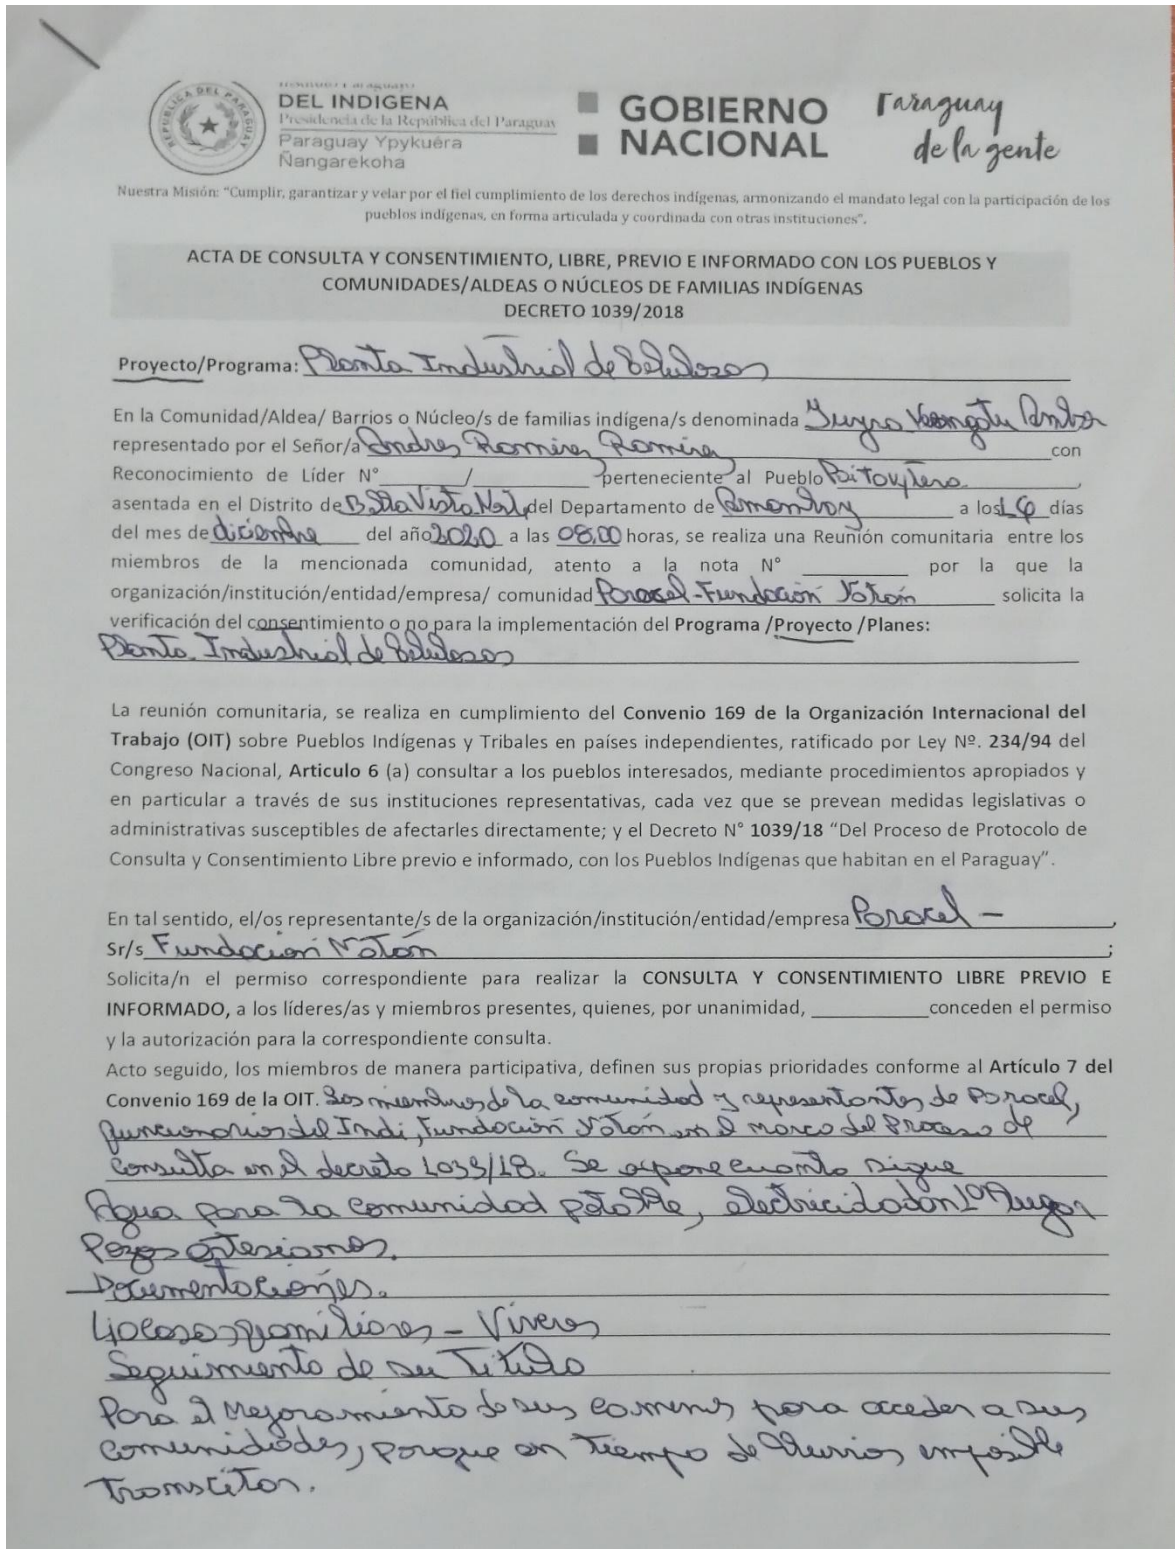 REPUBLICA DEL PARAGUAY
DEL INDIGENA
Presidencia de la República del Paraguay
Paraguay Ypykuéra
Ñangarekoha
GOBIERNO
NACIONAL
Paraguay
de la gente
Nuestra Misión: "Cumplir, garantizar y velar por el fiel cumplimiento de los derechos indígenas, armonizando el mandato legal con la participación de los
pueblos indígenas, en forma articulada y coordinada con otras instituciones".
ACTA DE CONSULTA Y CONSENTIMIENTO, LIBRE, PREVIO E INFORMADO CON LOS PUEBLOS Y
COMUNIDADES/ALDEAS O NÚCLEOS DE FAMILIAS INDÍGENAS
DECRETO 1039/2018
Proyecto/Programa: Planta Industrial de Celulosas
En la Comunidad/Aldea/ Barrios o Núcleo/s de familias indígena/s denominada
representado por el Señor/a Andres Romira Romira con
Reconocimiento de Líder N° / perteneciente al Pueblo Pai Tavytera,
asentada en el Distrito de Bella Vista Norte, del Departamento de Amambay a los 16 días
del mes de diciembre del año 2020 a las 08:00 horas, se realiza una Reunión comunitaria entre los
miembros de la mencionada comunidad, atento a la nota N° por la que la
organización/institución/entidad/empresa/ comunidad Paracel-Fundación Yotón solicita la
verificación del consentimiento o no para la implementación del Programa /Proyecto /Planes:
Planta Industrial de Celulosas
La reunión comunitaria, se realiza en cumplimiento del Convenio 169 de la Organización Internacional del
Trabajo (OIT) sobre Pueblos Indígenas y Tribales en países independientes, ratificado por Ley Nº. 234/94 del
Congreso Nacional, Articulo 6 (a) consultar a los pueblos interesados, mediante procedimientos apropiados y
en particular a través de sus instituciones representativas, cada vez que se prevean medidas legislativas o
administrativas susceptibles de afectarles directamente; y el Decreto N° 1039/18 "Del Proceso de Protocolo de
Consulta y Consentimiento Libre previo e informado, con los Pueblos Indígenas que habitan en el Paraguay".
En tal sentido, el/os representante/s de la organización/institución/entidad/empresa Paracel -,
Sr/s Fundación Yotón;
Solicita/n el permiso correspondiente para realizar la CONSULTA Y CONSENTIMIENTO LIBRE PREVIO E
INFORMADO, a los líderes/as y miembros presentes, quienes, por unanimidad, conceden el permiso
y la autorización para la correspondiente consulta.
Acto seguido, los miembros de manera participativa, definen sus propias prioridades conforme al Artículo 7 del
Convenio 169 de la OIT. Los miembros de la comunidad y representantes de Paracel,
funcionarios del Indi, Fundación Yotón en el marco del Proceso de
Consulta en el decreto 1039/18. Se expone cuanto sigue
Agua para la comunidad potable, electricidad en 1er lugar
Pozos artesianos.
- Documentaciones.
40 casas familiares - Víveres
Seguimiento de su Titulo
Para el mejoramiento de sus caminos para acceder a sus
comunidades, porque en tiempo de lluvias imposible
transitar.